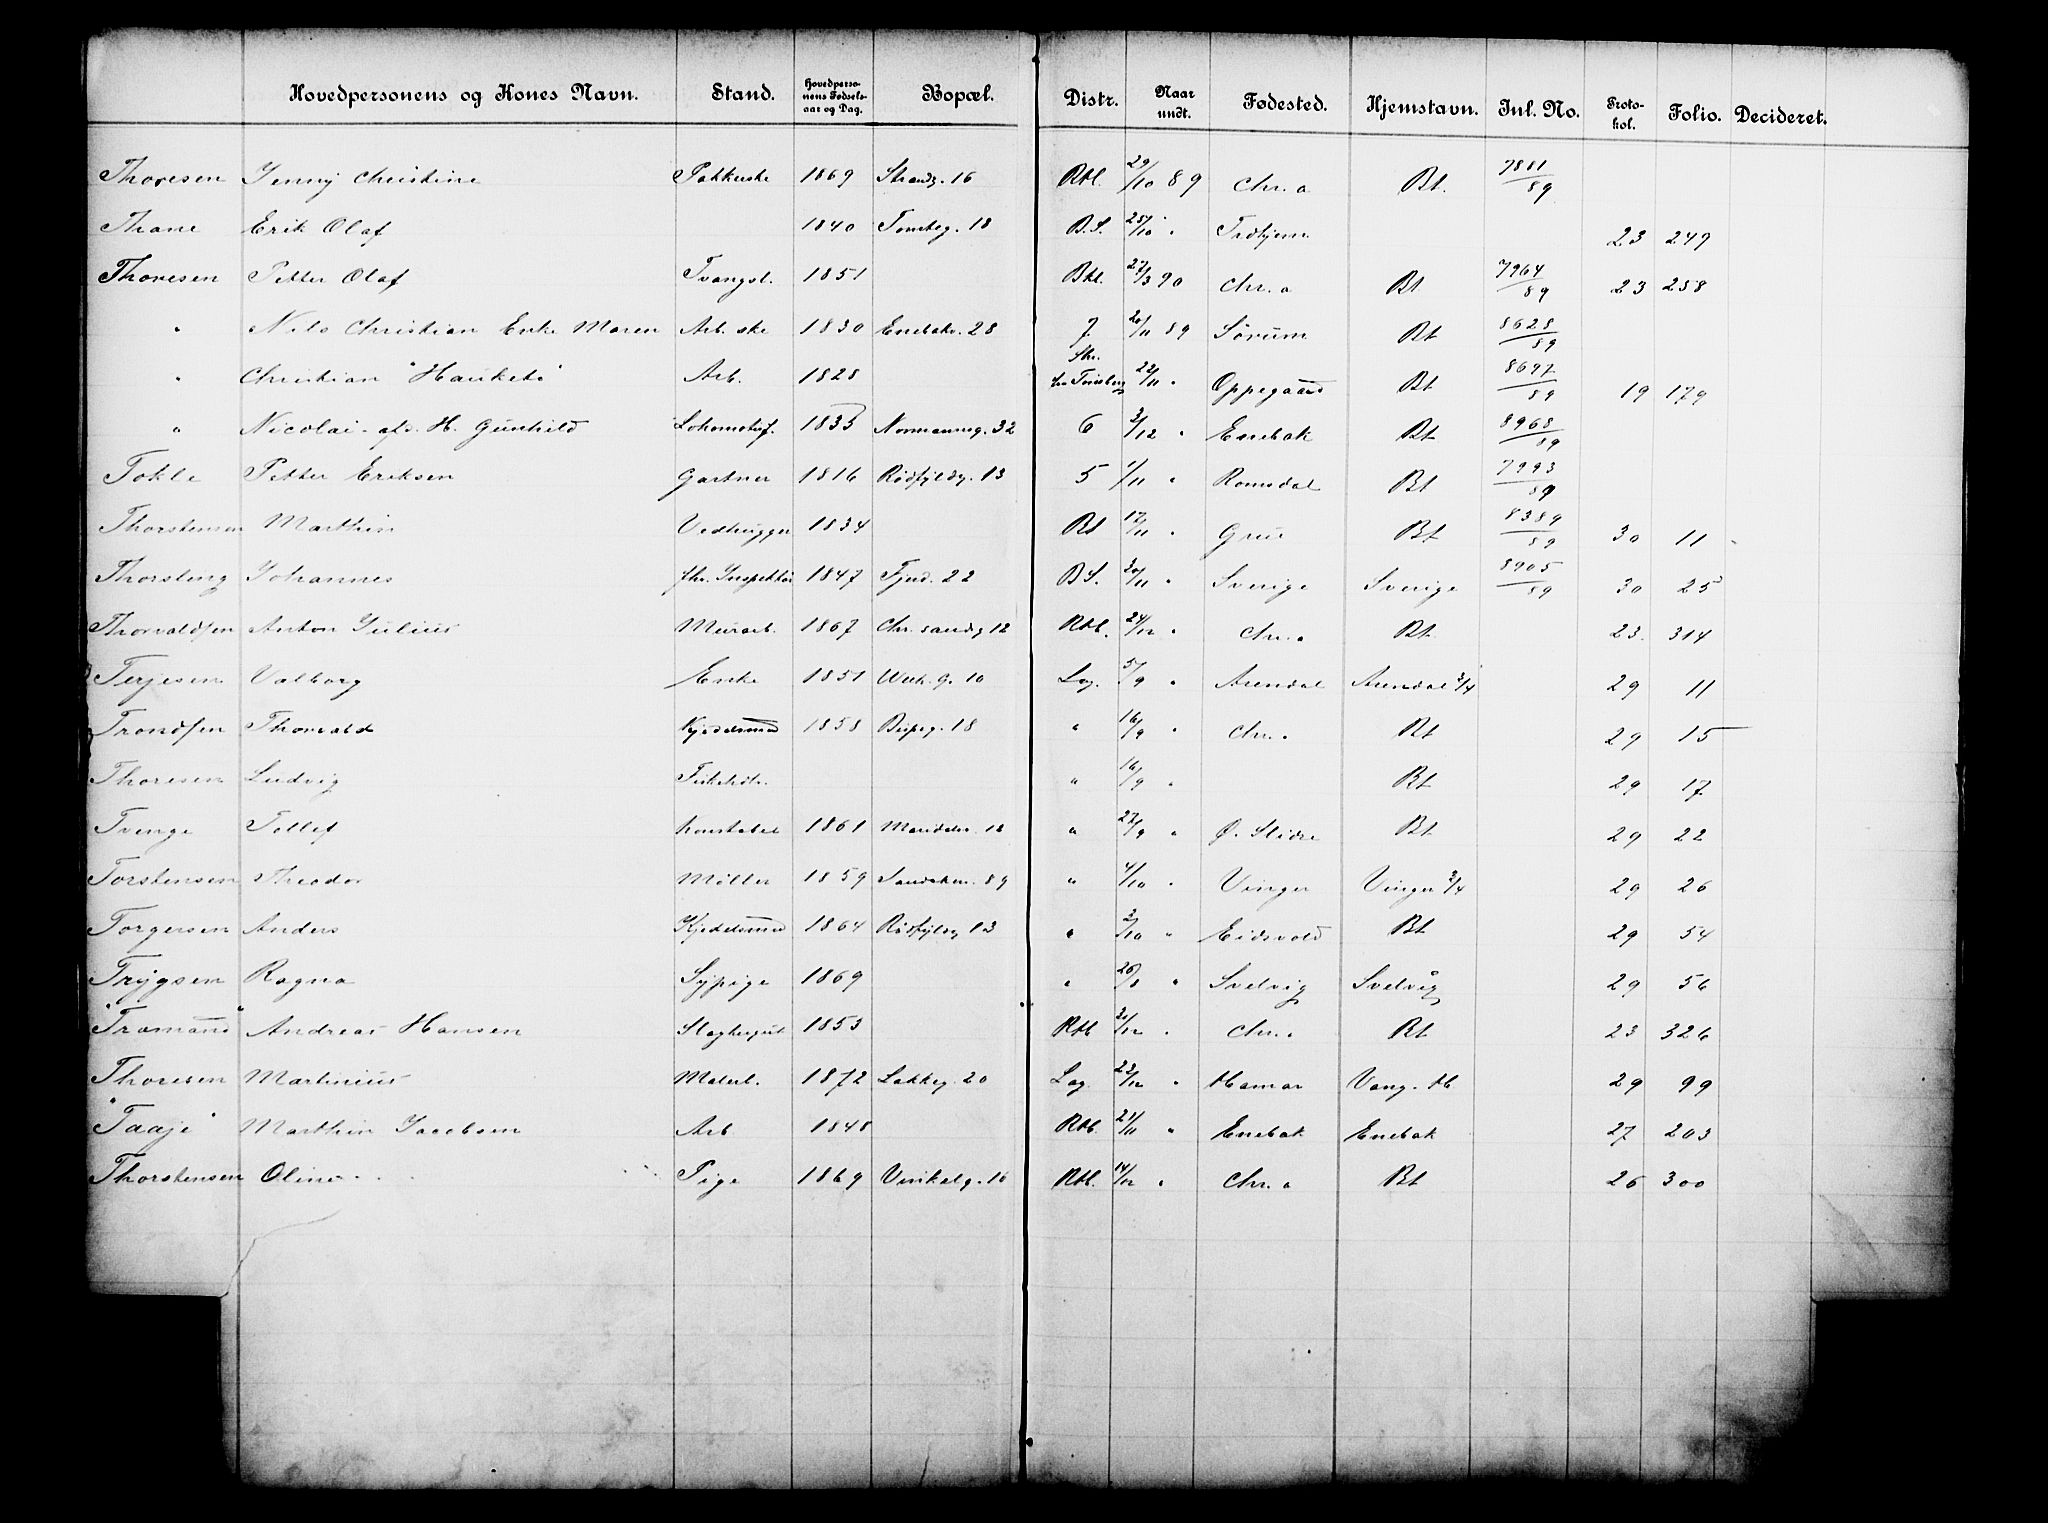 Hovedpersonens og Kones Navn. Stand. Hovedperso- nens Fødsels- aar og Dag. Bopæl. Distr. Naar undt. Fødested. Hjemstavn. Inl. No. Proto- kol. Folio. Decideret.
Thoresen Jenny Christine Pakkerske 1869 Strandg. 16 Rtl. 29/10 89 Chr.a Bt. 7881/89
Thrane Erik Olaf 1840 Tomteg. 18 B.S. 25/10 " Trdhjem 23 249
Thoresen Petter Olaf Tvangsl. 1851 Bkl. 27/3 90 Chr.a Bt 7964/89 23 258
" Nils Christian Enke Maren Arb. ske 1830 Enebakv. 28 7 20/11 89 Sørum Bt 8628/89
" Christian "Hauketo" Arb. 1828 22/11 " Oppegaard Bt 8697/89 19 179
" Nicolai - afd. H. Gunhild Lokomotivf. 1835 Normannsg. 32 6 3/12 " Enebak Bt 8968/89
Tokle Petter Eriksen Gartner 1816 Rødfyldg. 13 5 1/11 " Romsdal Bt 7993/89
Thorstensen Marthin Vedhugger 1834 Bt 12/11 " Grue Bt 8389/89 30 11
Thorsteng Johannes fhv. Inspektør 1847 Tjud. 22 B.S. 30/11 " Sverige Sverige 8905/89 30 25
Thorvaldsen Anton Julius Murarb. 1867 Chr. sandg 12 Rtl. 24/12 " Chr.a Bt 23. 314
Terjesen Valborg Enke 1851 10 Lag. 5/9 " Arendal Arendal 3/4 29 11
Trondsen Thorvald Kjedelsmed 1858 Bispeg. 18 " 16/9 " Chr.a Bt 29 15
Thoresen Ludvig " 16/9 " Bt 29 17.
Tvenge Tollef Konstabel 1861 Maridalsv. 18 " 27/9 " Ø. Slidre Bt 29 22
Torstensen Theodor Møller 1859 Sandakerv. 89 " 4/10 " Vinger Vinger 3/4 29 26
Torgersen Anders Kjedelsmed 1864 Rødfyldg 13 " 3/10 " Eidsvold Bt 29 54
Trygsen Ragna Sypige 1869 " 26/8 " Svelvig Svelvig 29 56
"Tramand" Andreas Hansen Slagtergut 1853 Rtl 31/12 " Chr.a Bt 23 326
Thoresen Martinius Malerl. 1872 Lakkeg. 20 Lag. 23/12 " Hamar Vang. H 29 99
"Taaje" Marthin Jacobsen Arb. 1848 Rtl. 21/11 " Enebak Enebak 27 203
Thorstensen Oline Pige 1869 Vinkelg. 16 Rtl. 14/12 " Chr.a Bt 26 300